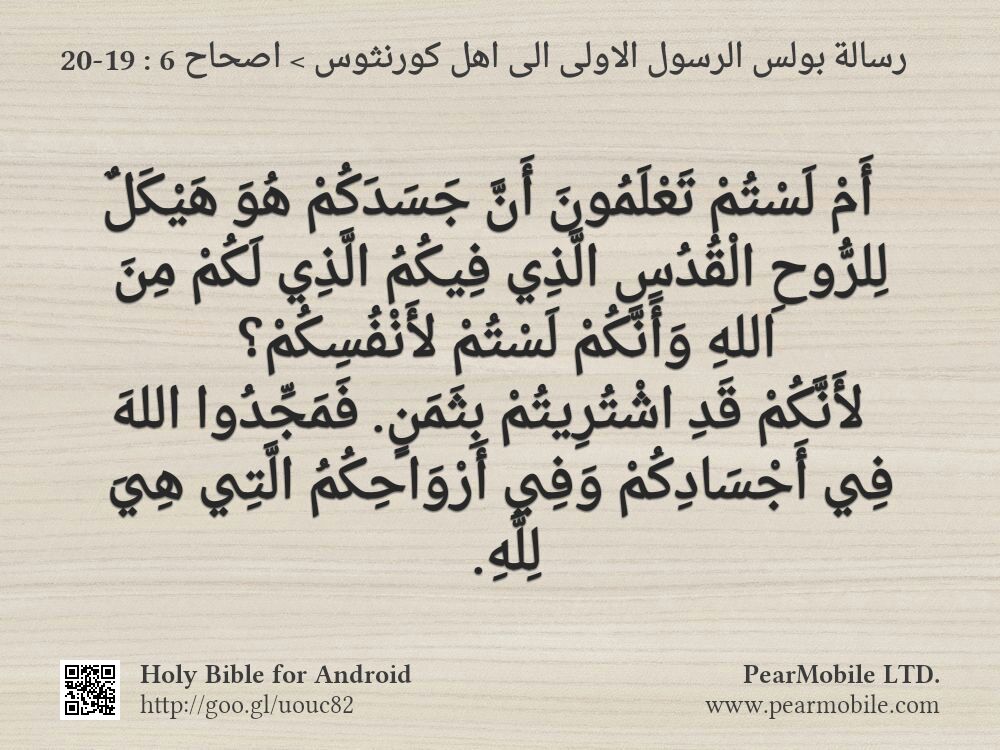 رسالة بولس الرسول الاولى الى اهل كورنثوس > اصحاح 6 : 19-20
أَمْ لَسْتُمْ تَعْلَمُونَ أَنَّ جَسَدَكُمْ هُوَ هَيْكَلٌ
لِلرُّوحِ الْقُدُسِ الَّذِي فِيكُمُ الَّذِي لَكُمْ مِنَ
اللهِ وَأَنَّكُمْ لَسْتُمْ لأَنْفُسِكُمْ؟
لأَنَّكُمْ قَدِ اشْتُرِيتُمْ بِثَمَنٍ. فَمَجِّدُوا اللهَ
فِي أَجْسَادِكُمْ وَفِي أَرْوَاحِكُمُ الَّتِي هِيَ
لِلَّهِ.
Holy Bible for Android
http://goo.gl/uouc82
PearMobile LTD.
www.pearmobile.com